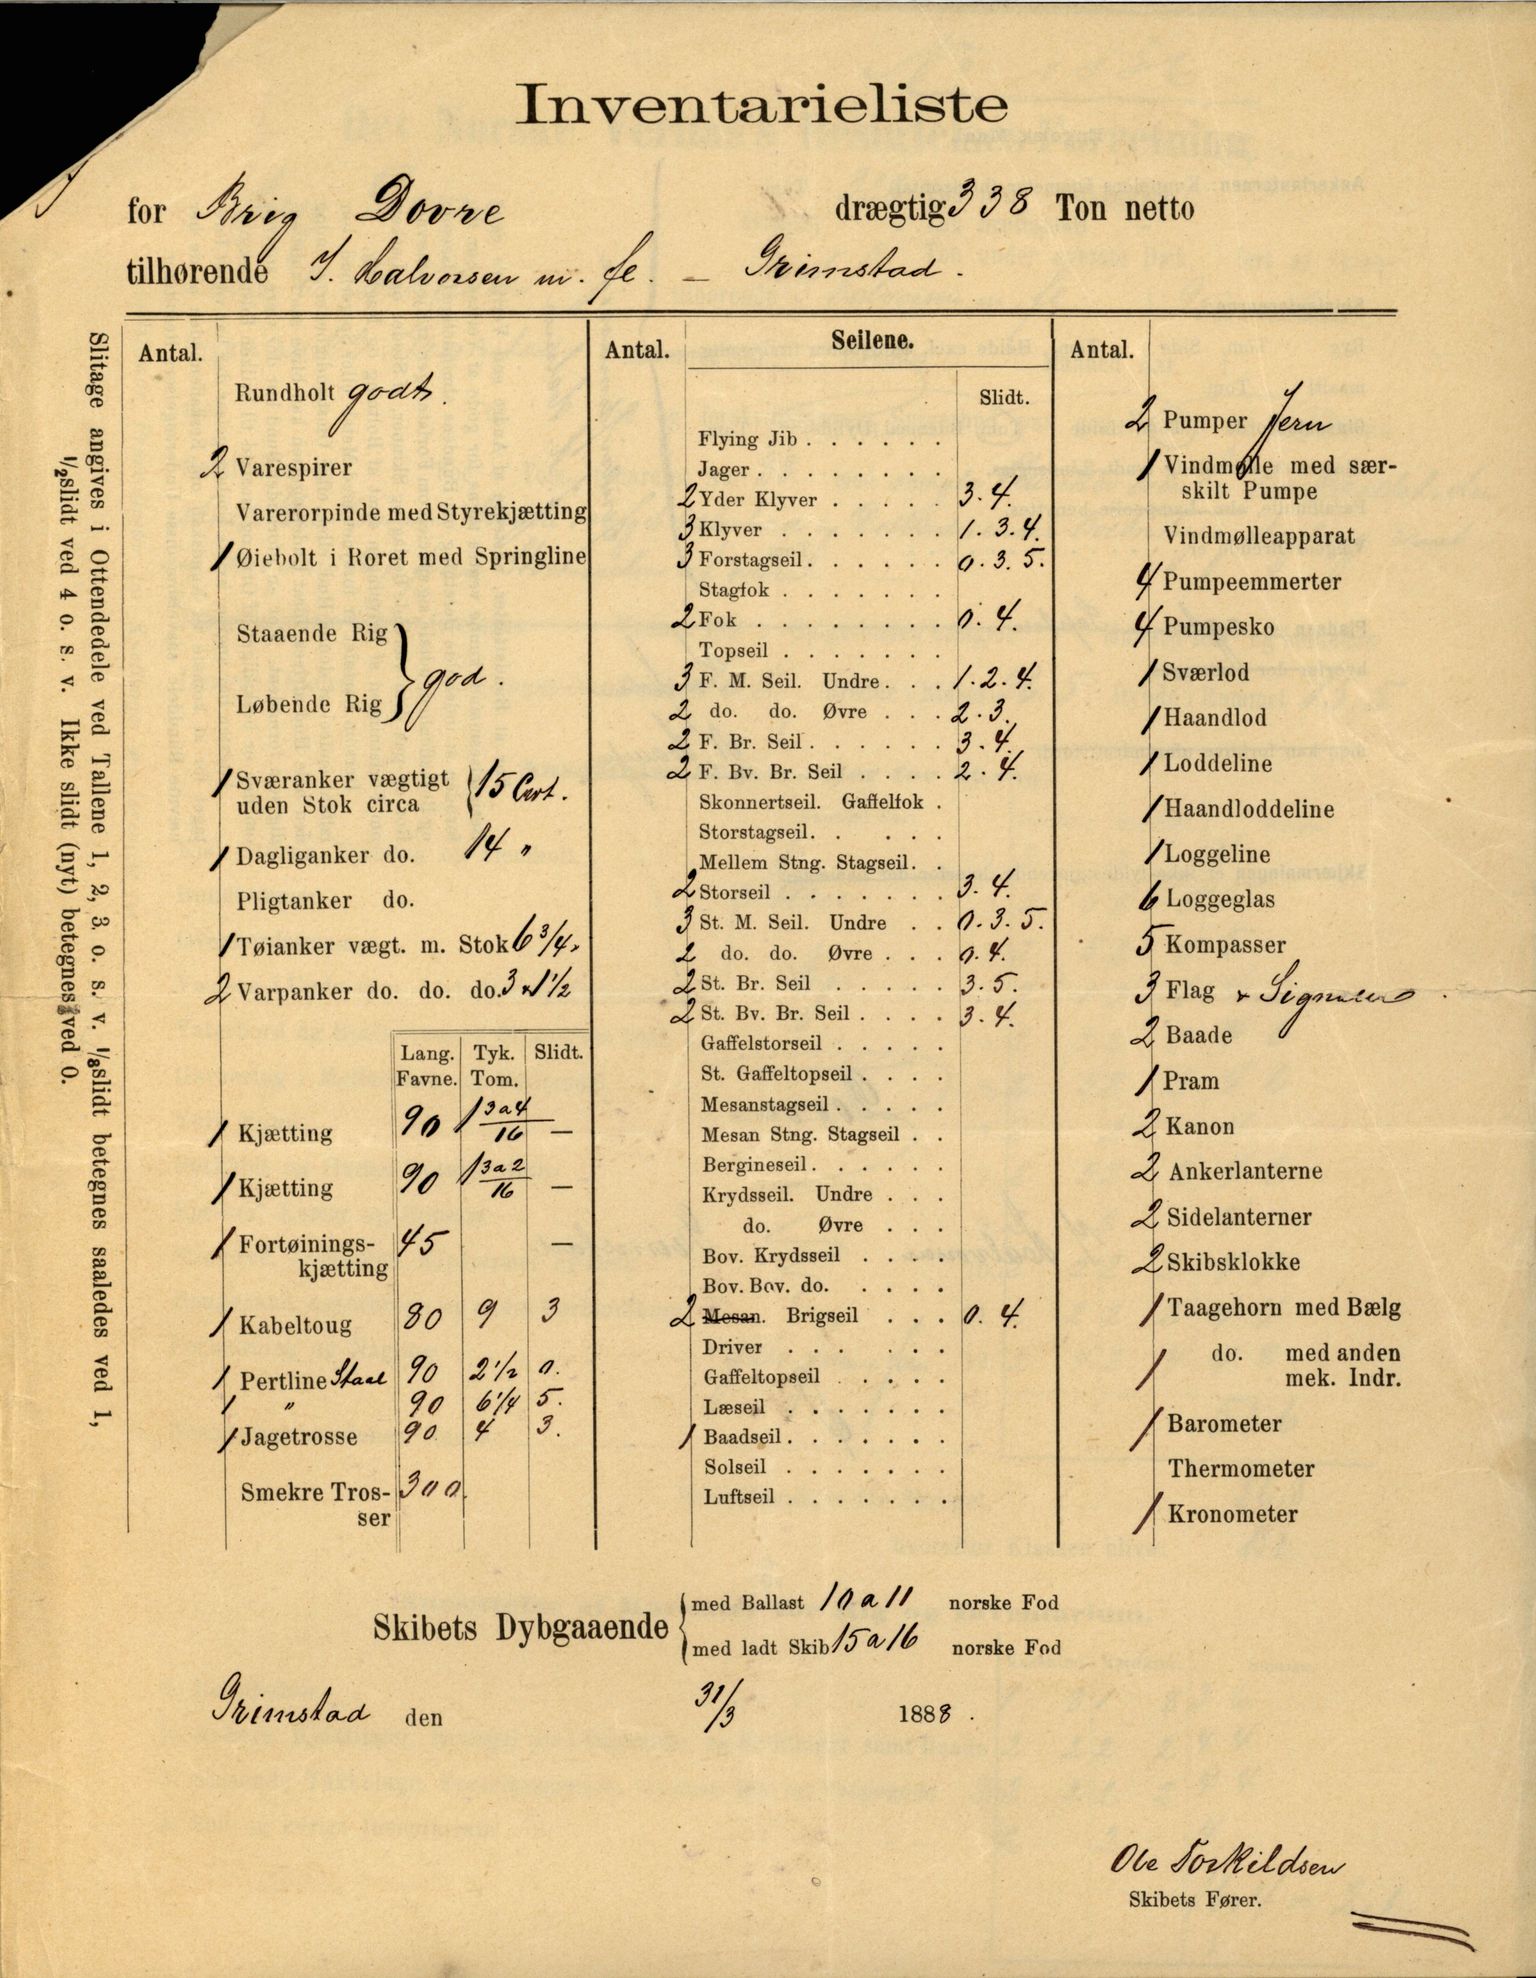 Inventarieliste
for Brig Dovre drægtig 338 Ton netto
tilhørende J. Halvorsen m. fl. – Grimstad.
Slitage angives i Ottendedele ved Tallene 1, 2, 3 o. s. v. 1/8 slidt betegnes saaledes ved 1,
1/2 slidt ved 4 o. s. v. Ikke slidt (nyt) betegnes ved 0.
Antal.
Rundholt godt.
2 Varespirer
Varerorpinde med Styrekjætting
1 Øiebolt i Roret med Springline
Staaende Rig
god.
Løbende Rig
1 Sværanker vægtigt
uden Stok circa 15 Cwt.
1 Dagliganker do. 14 "
Pligtanker do.
1 Tøianker vægt. m. Stok 6 3/4 "
2 Varpanker do. do. do. 3 " 1 1/2
Lang. Tyk. Slidt.
Favne. Tom.
1 Kjætting 90 1 3 a 4/16 —
1 Kjætting 90 1 3 a 2/16 —
1 Fortøinings- 45 —
kjætting
1 Kabeltoug 80 9 3
1 Pertline Staal 90 2 1/2 0.
1 " 90 6 1/4 5.
1 Jagetrosse 90 4 3.
Smekre Tros- 300
ser
Antal. Seilene.
Slidt.
Flying Jib . . . . . .
Jager . . . . . . .
2 Yder Klyver . . . . . 3. 4.
3 Klyver . . . . . . . 1. 3. 4.
3 Forstagseil . . . . . . 0. 3. 5.
Stagfok . . . . . . .
2 Fok . . . . . . . . 0. 4.
Topseil . . . . . . .
3 F. M. Seil. Undre . . . 1. 2. 4.
2 do. do. Øvre . . . 2. 3.
2 F. Br. Seil . . . . . . 3. 4.
2 F. Bv. Br. Seil . . . . 2. 4.
Skonnertseil. Gaffelfok .
Storstagseil. . . . .
Mellem Stng. Stagseil. .
2 Storseil . . . . . . . 3. 4.
3 St. M. Seil. Undre . . 0. 3. 5.
2 do. do. Øvre . . . 0. 4.
2 St. Br. Seil . . . . . 3. 5.
2 St. Bv. Br. Seil . . . . 3. 4.
Gaffelstorseil . . . . .
St. Gaffeltopseil . . . .
Mesanstagseil . . . . .
Mesan Stng. Stagseil . .
Bergineseil . . . . . .
Krydsseil. Undre . . .
do. Øvre . . .
Bov. Krydsseil . . . .
Bov. Bov. do. . . . .
2 Mesan. Brigseil . . . 0. 4.
Driver . . . . . .
Gaffeltopseil . . . . .
Læseil . . . . . . .
1 Baadseil . . . . . . .
Solseil . . . . . . .
Luftseil . . . . . . .
Antal.
2 Pumper Jern
1 Vindmølle med sær-
skilt Pumpe
Vindmølleapparat
4 Pumpeemmerter
4 Pumpesko
1 Sværlod
1 Haandlod
1 Loddeline
1 Haandloddeline
1 Loggeline
6 Loggeglas
5 Kompasser
3 Flag + Signaler
2 Baade
1 Pram
2 Kanon
2 Ankerlanterne
2 Sidelanterner
2 Skibsklokke
1 Taagehorn med Bælg
1 do. med anden
mek. Indr.
1 Barometer
Thermometer
1 Kronometer
Skibets Dybgaaende
med Ballast 10 a 11 norske Fod
med ladt Skib 15 a 16 norske Fod
Grimstad den 31/3 1888.
Ole Torkildsen
Skibets Fører.